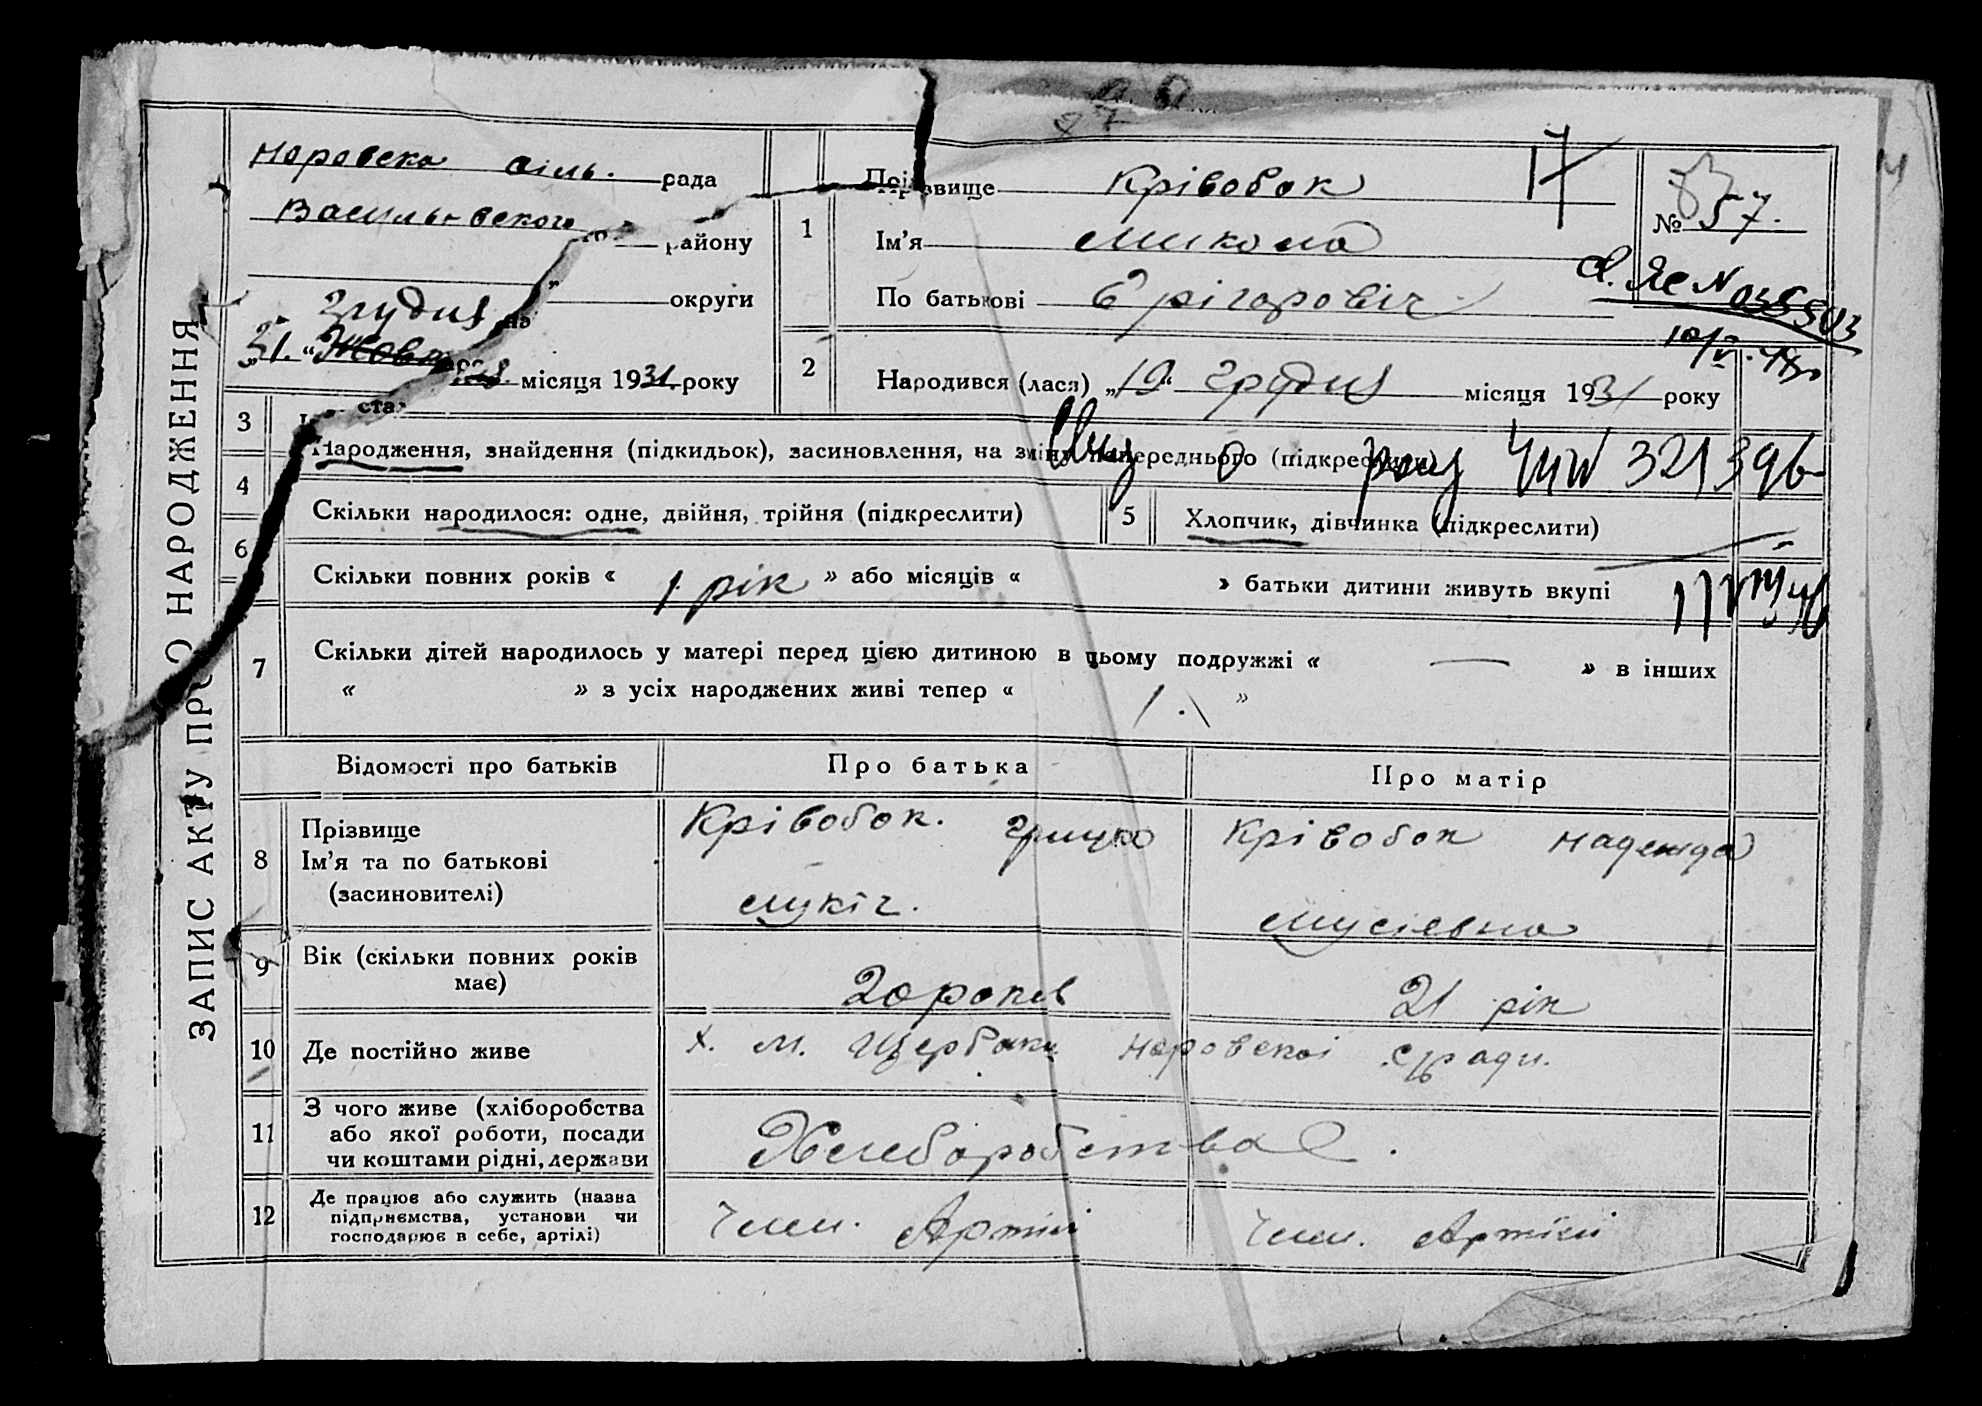 ЗАПИС АКТУ ПРО НАРОДЖЕННЯ
Норовска сіль. рада
Васильвского району
округи
Грудня
31. " місяця 1931 року
1
Прізвище Крівобок
Ім'я Микола
По батькові Грігоровіч
№ 57.
17
10/V
2
Народився (лася) „19" грудня місяця 1931 року
3
Народження, знайдення (підкидьок), засиновлення, на зміну попереднього (підкреслити)
321396
4
Скільки народилося: одне, двійня, трійня (підкреслити)
5
Хлопчик, дівчинка (підкреслити)
6
Скільки повних років « 1 рік » або місяців « » батьки дитини живуть вкупі
7
Скільки дітей народилось у матері перед цією дитиною в цьому подружжі « — » в інших
« » з усіх народжених живі тепер « 1. »
Відомості про батьків
Про батька
Про матір
8
Прізвище
Ім'я та по батькові
(засиновителі)
Крівобок. Грицко
Лукіч.
Крівобок Надежда
Мусіевна
9
Вік (скільки повних років
має)
20 роков
21 рік
10
Де постійно живе
х. м. Щербаки Норовскоі с/ради.
11
З чого живе (хліборобства
або якої роботи, посади
чи коштами рідні, держави
Хлиборобства
12
Де працює або служить (назва
підприємства, установи чи
господарює в себе, артілі)
Член. Артілі
Член. Артілі